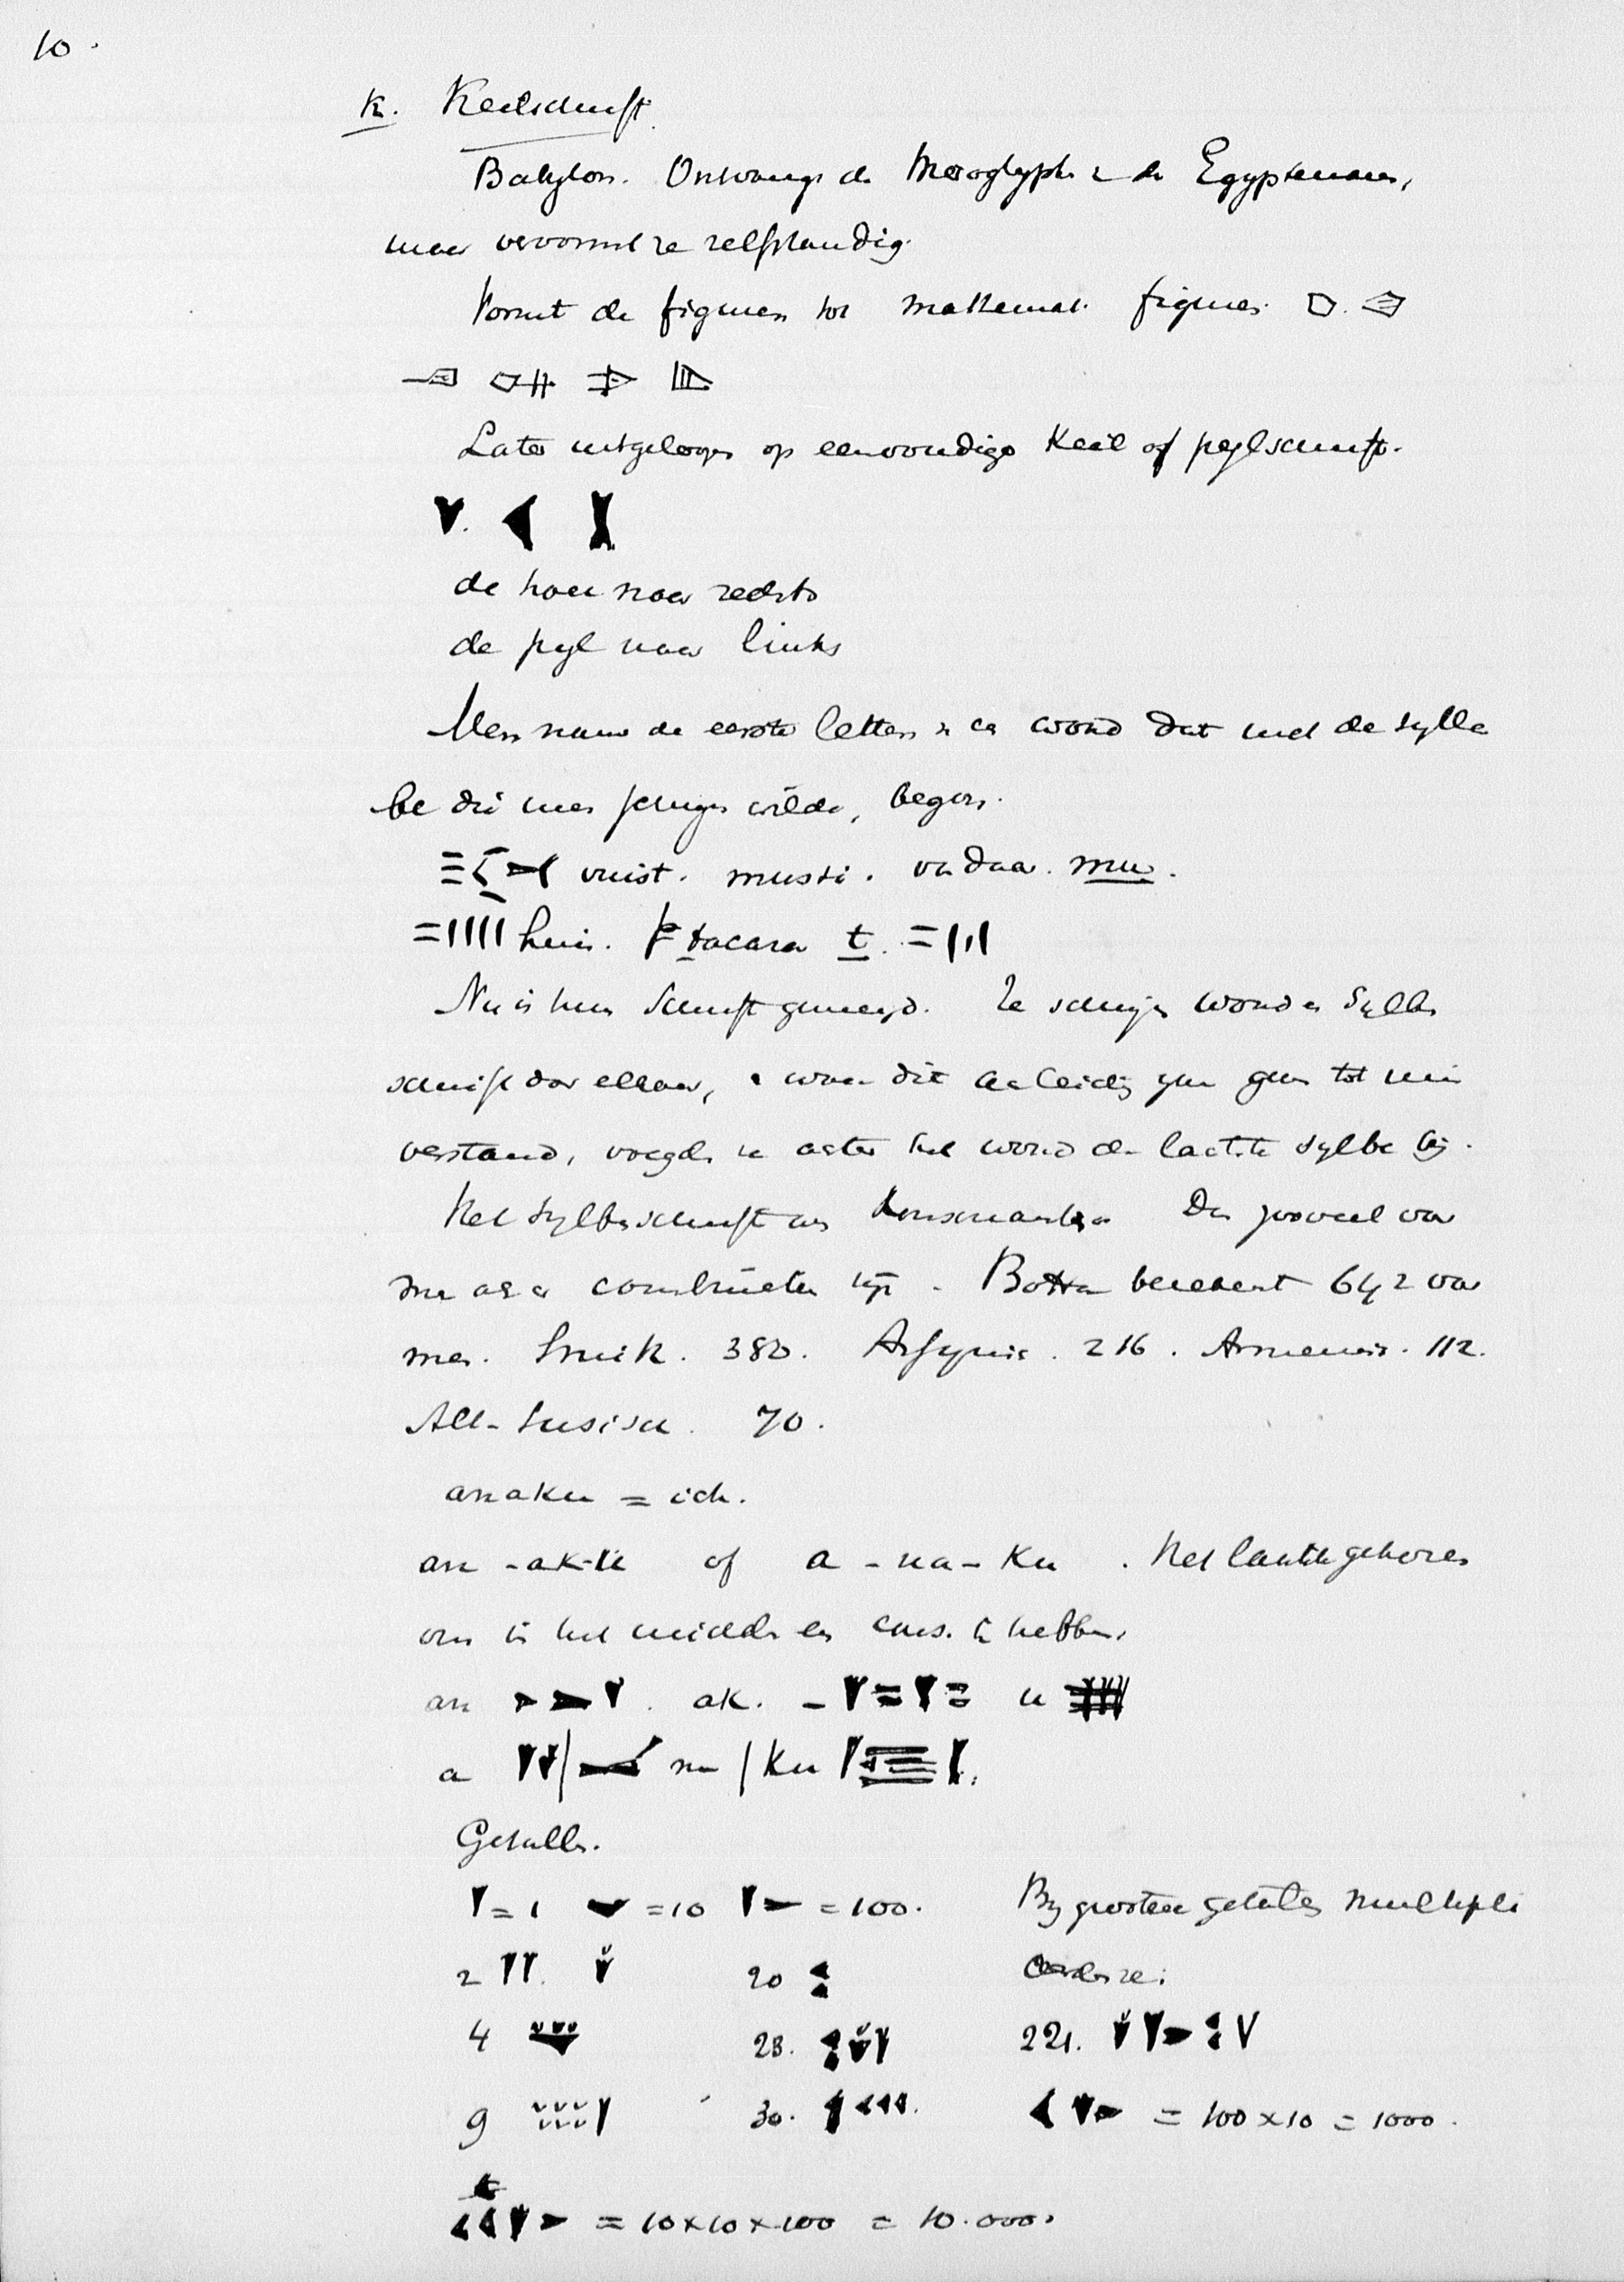 10.
K. Keilschrift.
Babylon. Ontvangt de Hieroglyphen v. de Egyptenaren,
maar vervormt ze zelfstandig.
Vormt de figuren tot mathemat. figuren.
Later uitgeloopen op eenvoudige Keil of pijlschrift.
de naar rechts
de pijl naar links
Men nam de eerste letters v. een woord dat met de sylla
be die men wilde, begon.
vuist. mussi. vandaar. mu.
huis. tacara t.
Nu is hun Schrift gemengd. Ze schrijven woord en Sylben
schrift door elkaar, en waar dit aanleiding zou geven tot mis
verstand, voegden ze achter het woord de laatste sylbe bij.
Het Sylbenschrift van Konsonanten. Der zooveel voor
men als er combinatien zijn. Botta berekent 642 voor
men. Smith. 380. Assyrië. 216. Armenië. 112.
Alt-Susisch. 70.
anaku = ich.
an-ak-u of a-na-ku. Het laatste gekozen
om in het midden een cons. te hebben.
an ak. u
a na / Ku
Getallen.
= 1 = 10 = 100. By grootere getallen multipli
2 20 ceeren ze:
4 23. 221.
9 30. = 100 x 10 = 1000.
= 10 x 10 x 100 = 10.000.